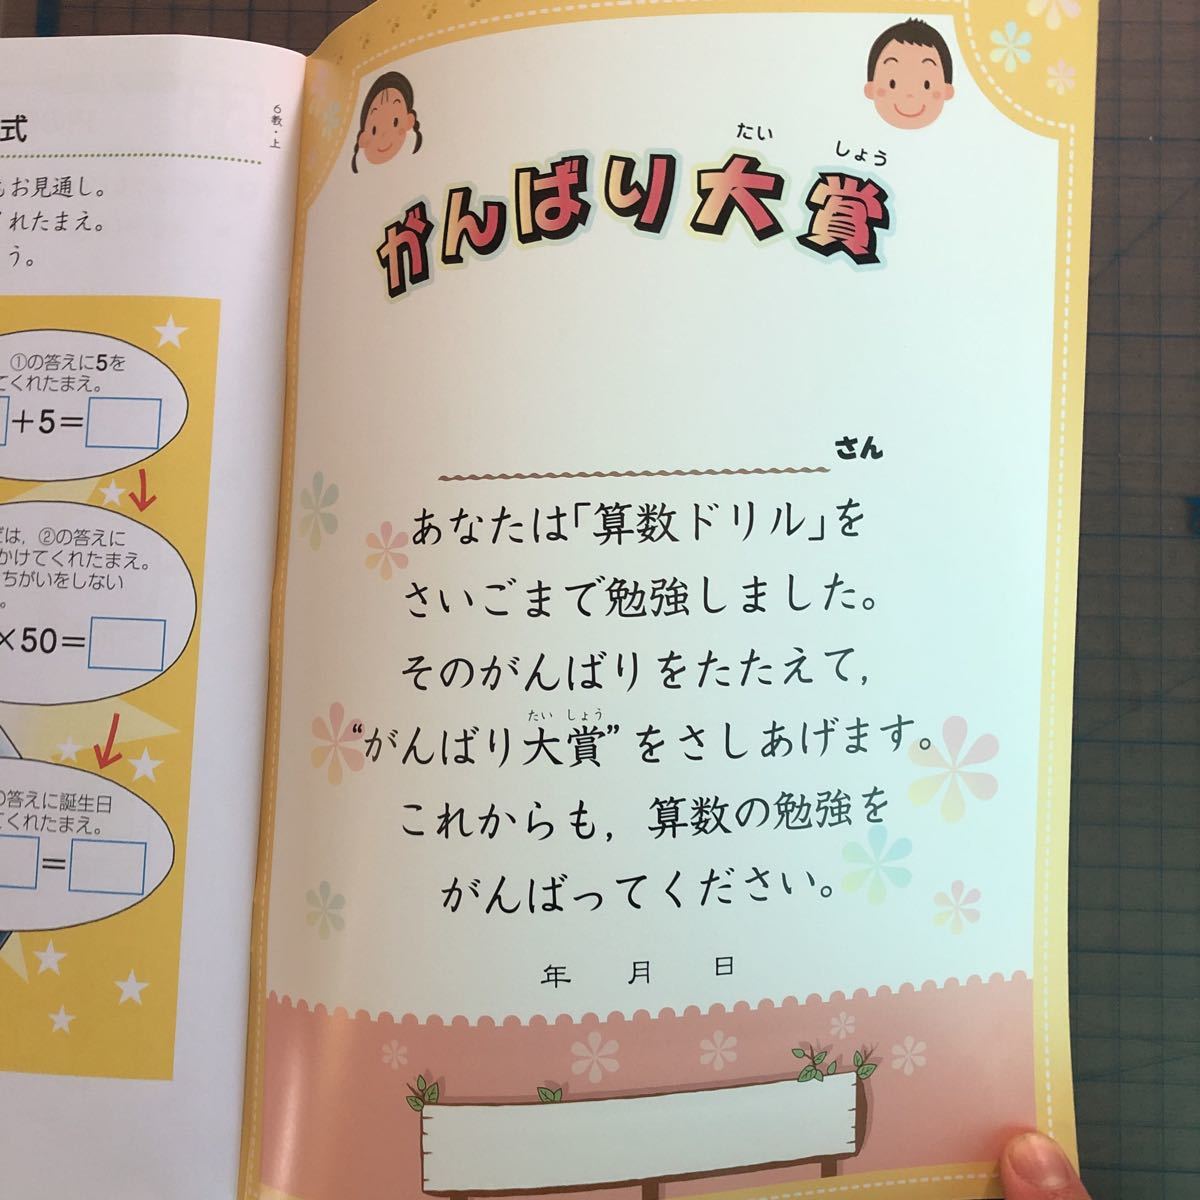 式
6教・上
お見通し。
れたまえ。
う。
①の答えに5を
てくれたまえ。
+5=
は,②の答えに
かけてくれたまえ。
ちがいをしない
。
×50=
の答えに誕生日
てくれたまえ。
=
たい しょう
がんばり大賞
さん
あなたは「算数ドリル」を
さいごまで勉強しました。
そのがんばりをたたえて,
たい しょう
“がんばり大賞”をさしあげます。
これからも,算数の勉強を
がんばってください。
年 月 日